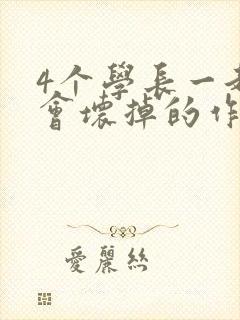 4个學長一
會壞掉的作
愛麗絲